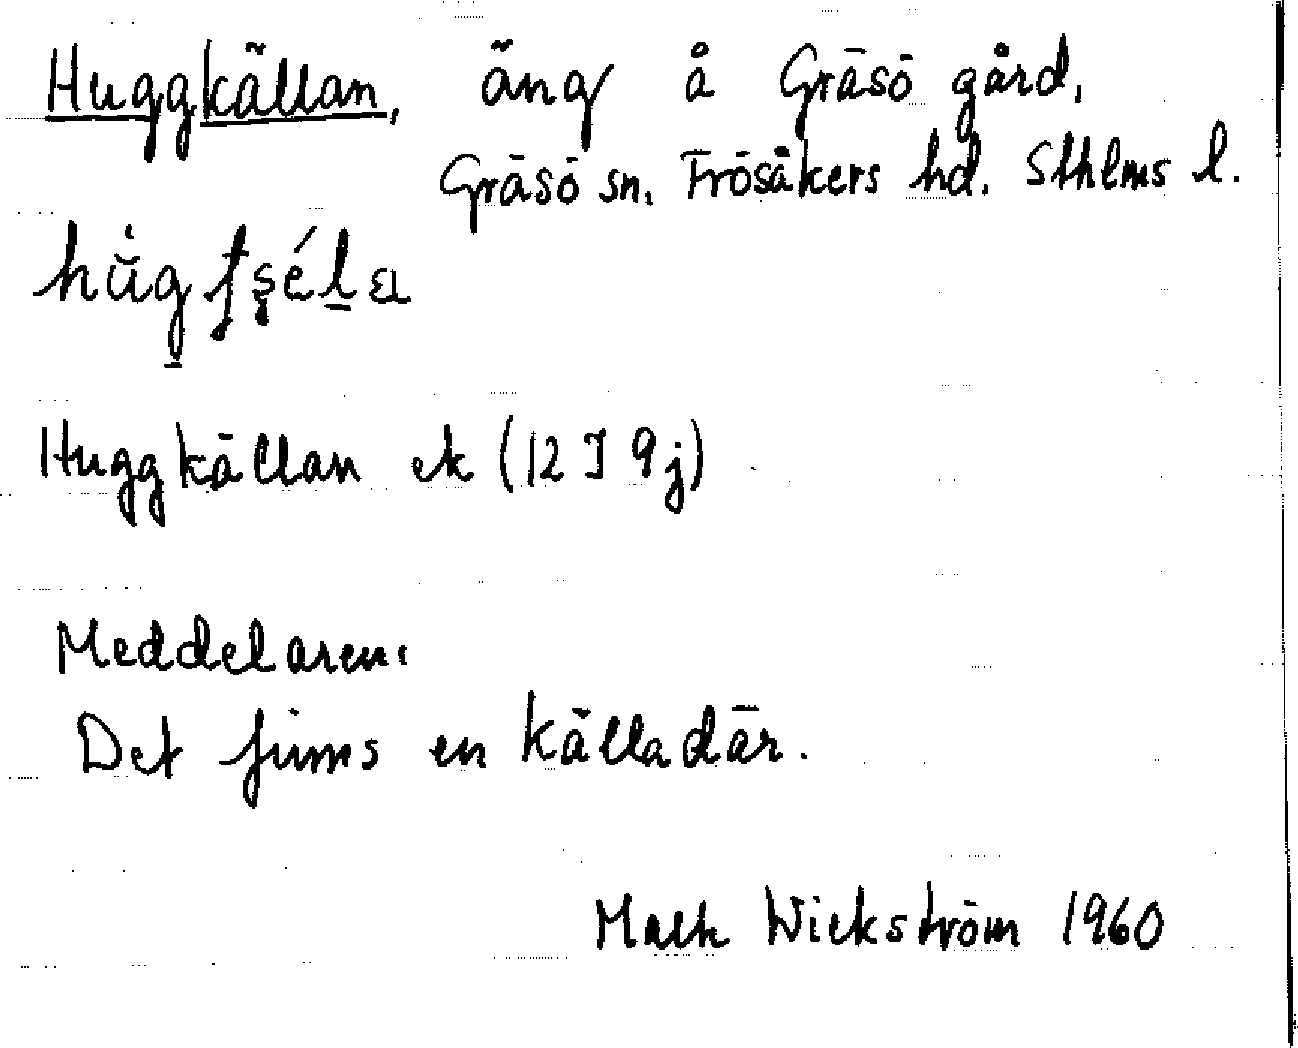 Huggkällan, äng å Gräsö gård,
Gräsö sn. Frösåkers hd. Sthlms l.
Huggkällan ek (12 I 9 j)
Meddelaren:
Det finns en källa där.
Wickström 1960